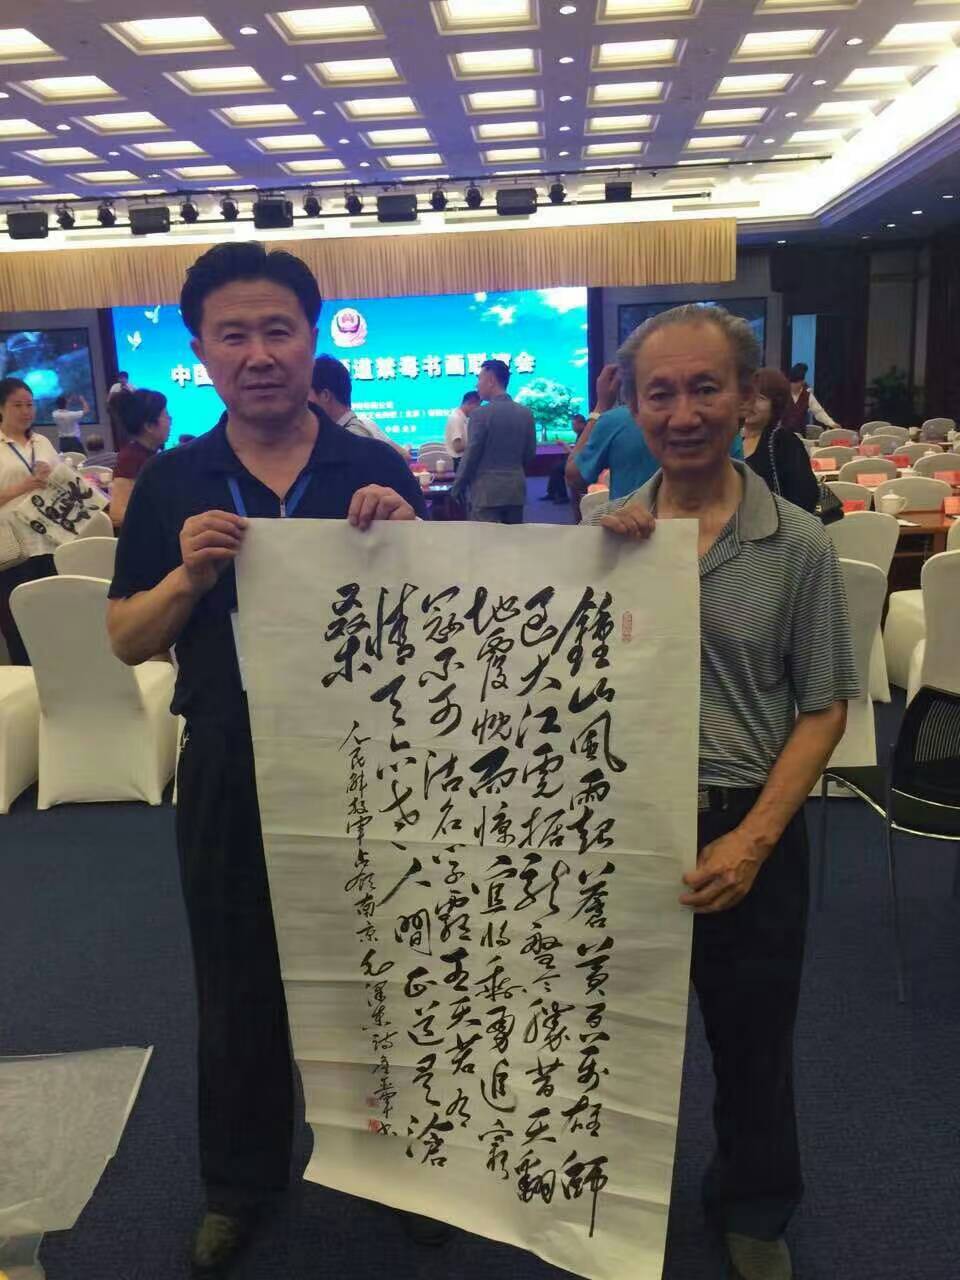 中国
道禁毒书画联谊会
鐘山風雨起蒼黄百万雄師
过大江虎据龙盤今勝昔天翻
地覆慨而慷宜将剩勇追窮
寇不可沽名学霸王天若有
情天亦老人間正道是滄
桑
人民解放軍占領南京 毛澤東詩